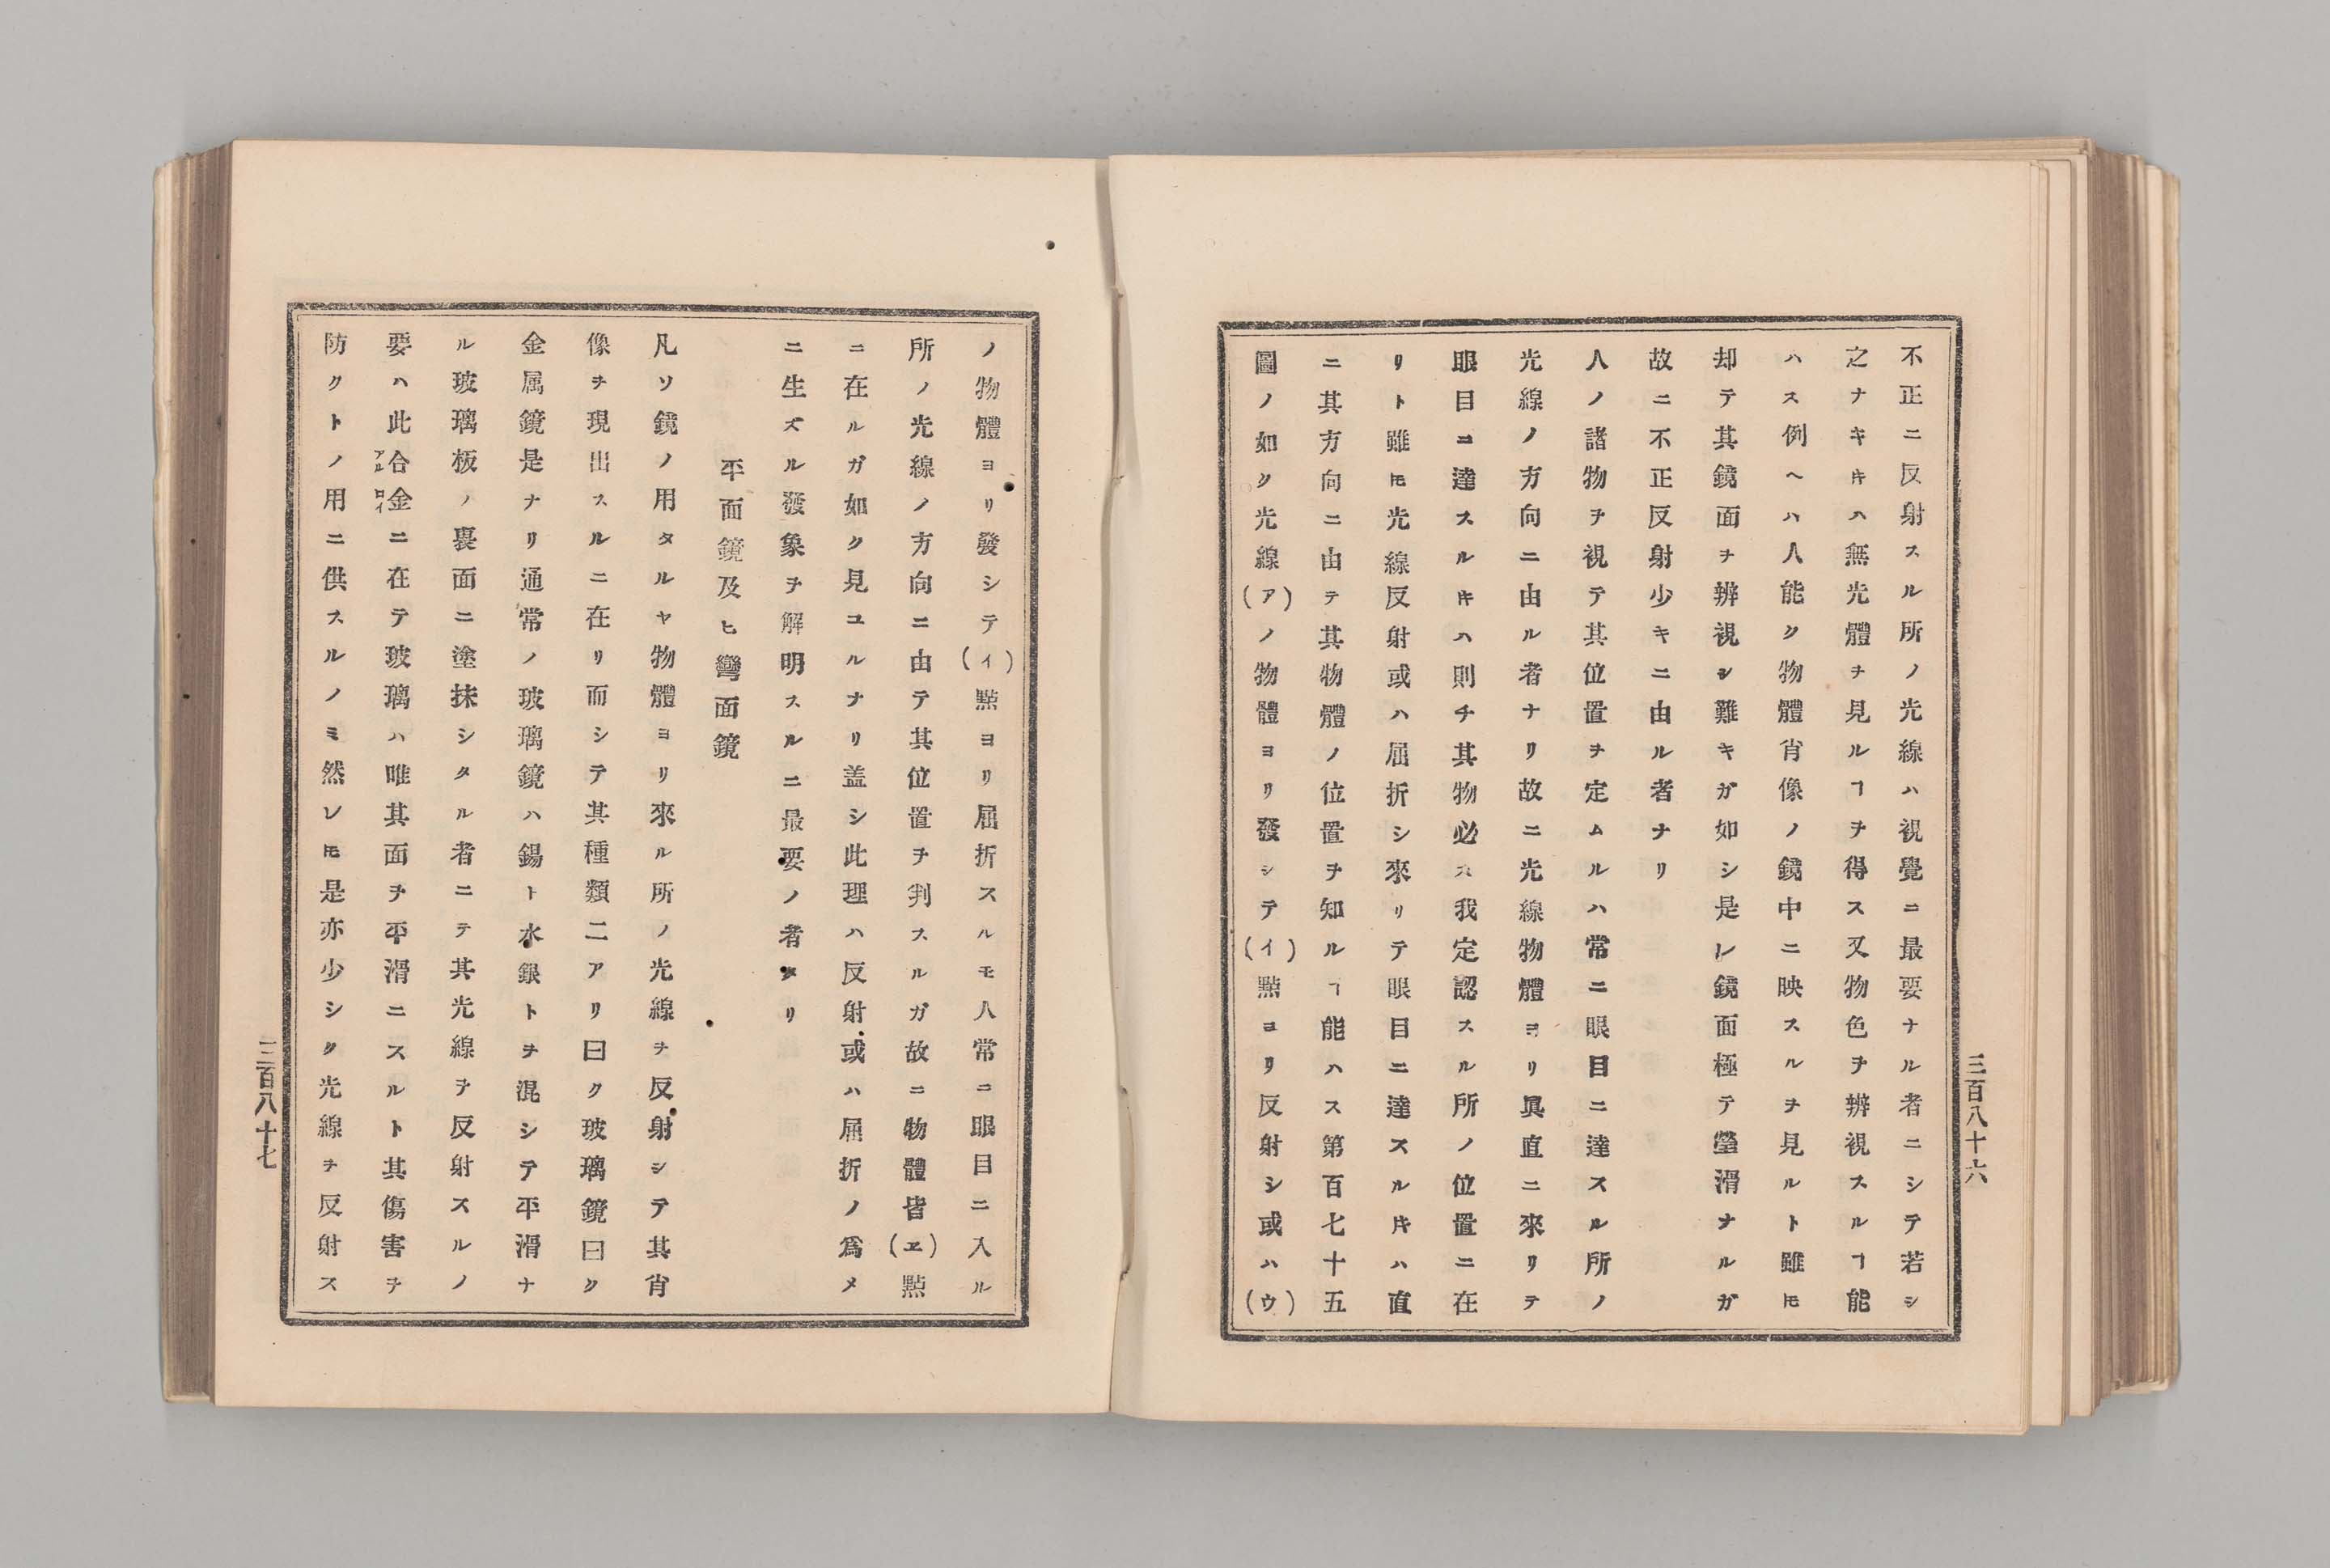 不正ニ反射スル所ノ光線ハ視覺ニ最要ナル者ニシテ若シ
之ナキキハ無光體ヲ見ルヿヲ得ス又物色ヲ辨視スルヿ能
ハス例ヘハ人能ク物體肖像ノ鏡中ニ映スルヲ見ルト雖𪜈
却テ其鏡面ヲ辨視シ難キガ如シ是レ鏡面極テ瑩滑ナルガ
故ニ不正反射少キニ由ル者ナリ
人ノ諸物ヲ視テ其位置ヲ定ムルハ常ニ眼目ニ達スル所ノ
光線ノ方向ニ由ル者ナリ故ニ光線物體ヨリ眞直ニ來リテ
眼目ニ達スルキハ則チ其物必ス我定認スル所ノ位置ニ在
リト雖𪜈光線反射或ハ屈折シ來リテ眼目ニ達スルキハ直
ニ其方向ニ由テ其物體ノ位置ヲ知ルヿ能ハス第百七十五
圖ノ如ク光線(ア)ノ物體ヨリ發シテ(イ)點ヨリ反射シ或ハ(ウ)
三百八十六
ノ物體ヨリ發シテ(イ)點ヨリ屈折スルモ人常ニ眼目ニ入ル
所ノ光線ノ方向ニ由テ其位置ヲ判スルガ故ニ物體皆(ヱ)點
ニ在ルガ如ク見ユルナリ盖シ此理ハ反射或ハ屈折ノ爲メ
ニ生ズル發象ヲ解明スルニ最要ノ者タリ
平面鏡及ヒ彎面鏡
凡ソ鏡ノ用タルヤ物體ヨリ來ル所ノ光線ヲ反射シテ其肖
像ヲ現出スルニ在リ而シテ其種類二アリ曰ク玻璃鏡曰ク
金属鏡是ナリ通常ノ玻璃鏡ハ錫ト水銀トヲ混シテ平滑ナ
ル玻璃板ノ裏面ニ塗抹シタル者ニテ其光線ヲ反射スルノ
要ハ此合金ニ在テ玻璃ハ唯其面ヲ平滑ニスルト其傷害ヲ
アルロイ
防クトノ用ニ供スルノミ然レ𪜈是亦少シク光線ヲ反射ス
三百八十七